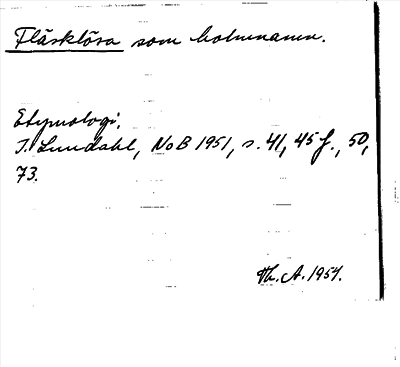 Fläsklösa som holmnamn.
Etymologi.
I. Lundahl, NoB 1951, s. 41, 45 f., 50,
73.
Th. A. 1957.